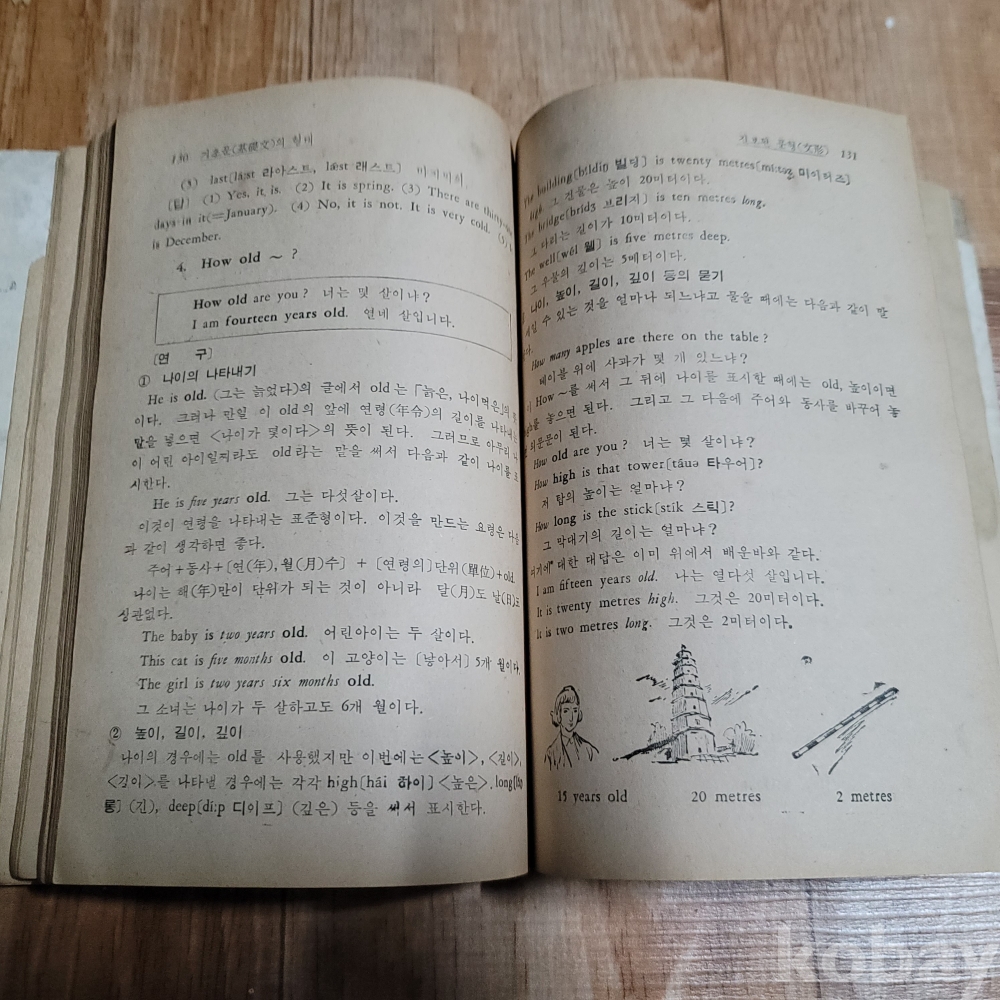 130 기초문(基礎文)의 형태
(5) last[lɑːst 라아스트, læst 래스트] 마지막의
[답] (1) Yes, it is. (2) It is spring. (3) There are thirty-one
days in it(=January). (4) No, it is not. It is very cold. (5) It
is December.
4. How old ~ ?
How old are you? 너는 몇 살이냐?
I am fourteen years old. 열네 살입니다.
[연 구]
① 나이의 나타내기
He is old. (그는 늙었다)의 글에서 old는 「늙은, 나이먹은」의
이다. 그러나 만일 이 old의 앞에 연령(年令)의 길이를 나타내는
말을 넣으면 <나이가 몇이다>의 뜻이 된다. 그러므로 아무리
이 어린 아이일찌라도 old라는 말을 써서 다음과 같이 나이를 표
시한다.
He is five years old. 그는 다섯살이다.
이것이 연령을 나타내는 표준형이다. 이것을 만드는 요령은 다음
과 같이 생각하면 좋다.
주어+동사+[연(年), 월(月)수] + [연령의]단위(單位)+old.
나이는 해(年)만이 단위가 되는 것이 아니라 달(月)도 날(日)도
상관없다.
The baby is two years old. 어린아이는 두 살이다.
This cat is five months old. 이 고양이는 [낳아서] 5개 월이다.
The girl is two years six months old.
그 소녀는 나이가 두 살하고도 6개 월이다.
② 높이, 길이, 깊이
나이의 경우에는 old를 사용했지만 이번에는 <높이>, <길이>,
<깊이>를 나타낼 경우에는 각각 high[hái 하이] <높은>, long[lɔŋ
롱] (긴), deep[díːp 디이프] (깊은) 등을 써서 표시한다.
기본적 문형(文形) 131
The building[bíldiŋ 빌딩] is twenty metres[míːtəz 미이터즈]
high. 그 건물은 높이 20미터이다.
The bridge[bridʒ 브리지] is ten metres long.
그 다리는 길이가 10미터이다.
The well[wél 웰] is five metres deep.
그 우물의 깊이는 5메터이다.
나이, 높이, 길이, 깊이 등의 묻기
세일 수 있는 것을 얼마나 되느냐고 물을 때에는 다음과 같이 말
한다.
How many apples are there on the table?
테이블 위에 사과가 몇 개 있느냐?
이 How ~를 써서 그 뒤에 나이를 표시할 때에는 old, 높이이면
high를 놓으면 된다. 그리고 그 다음에 주어와 동사를 바꾸어 놓
면 의문문이 된다.
How old are you? 너는 몇 살이냐?
How high is that tower[táuə 타우어]?
저 탑의 높이는 얼마냐?
How long is the stick[stik 스틱]?
그 막대기의 길이는 얼마냐?
여기에 대한 대답은 이미 위에서 배운바와 같다.
I am fifteen years old. 나는 열다섯 살입니다.
It is twenty metres high. 그것은 20미터이다.
It is two metres long. 그것은 2미터이다.
15 years old 20 metres 2 metres
kobay